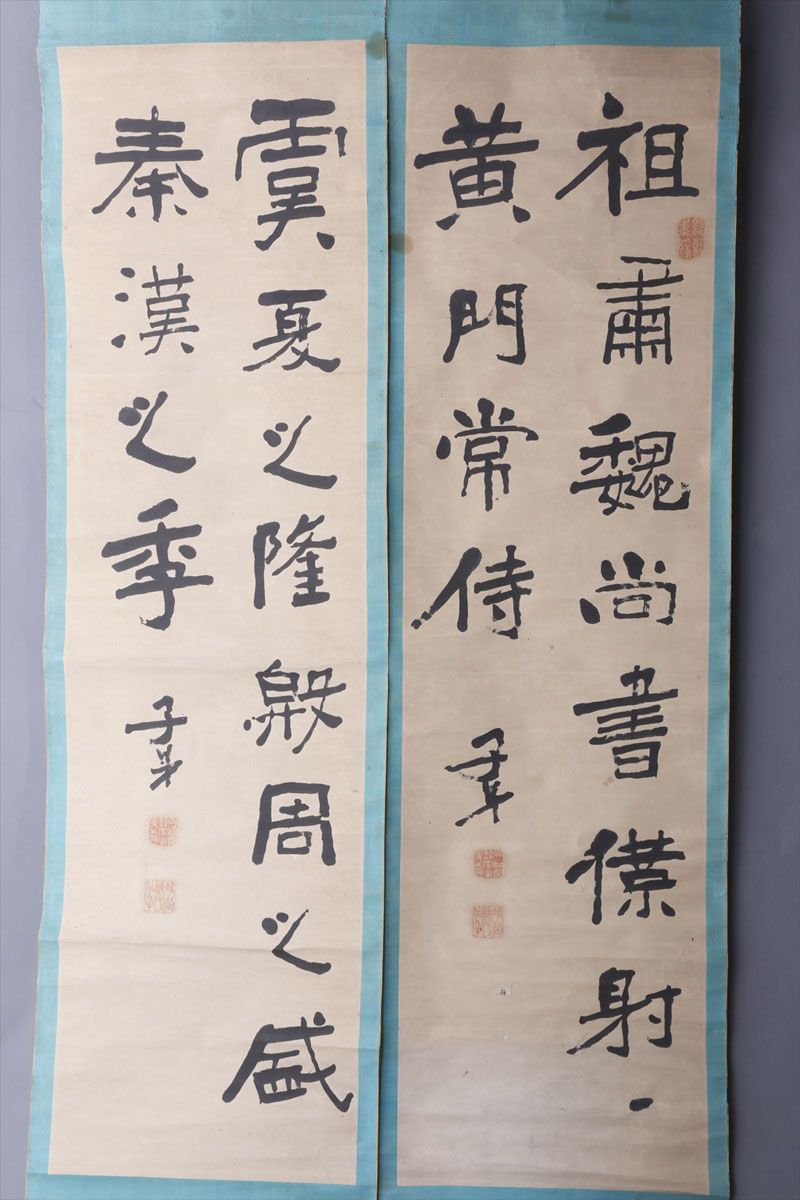 祖肅魏尚書僕射、
黃門常侍
虞夏之隆殷周之盛
秦漢之季